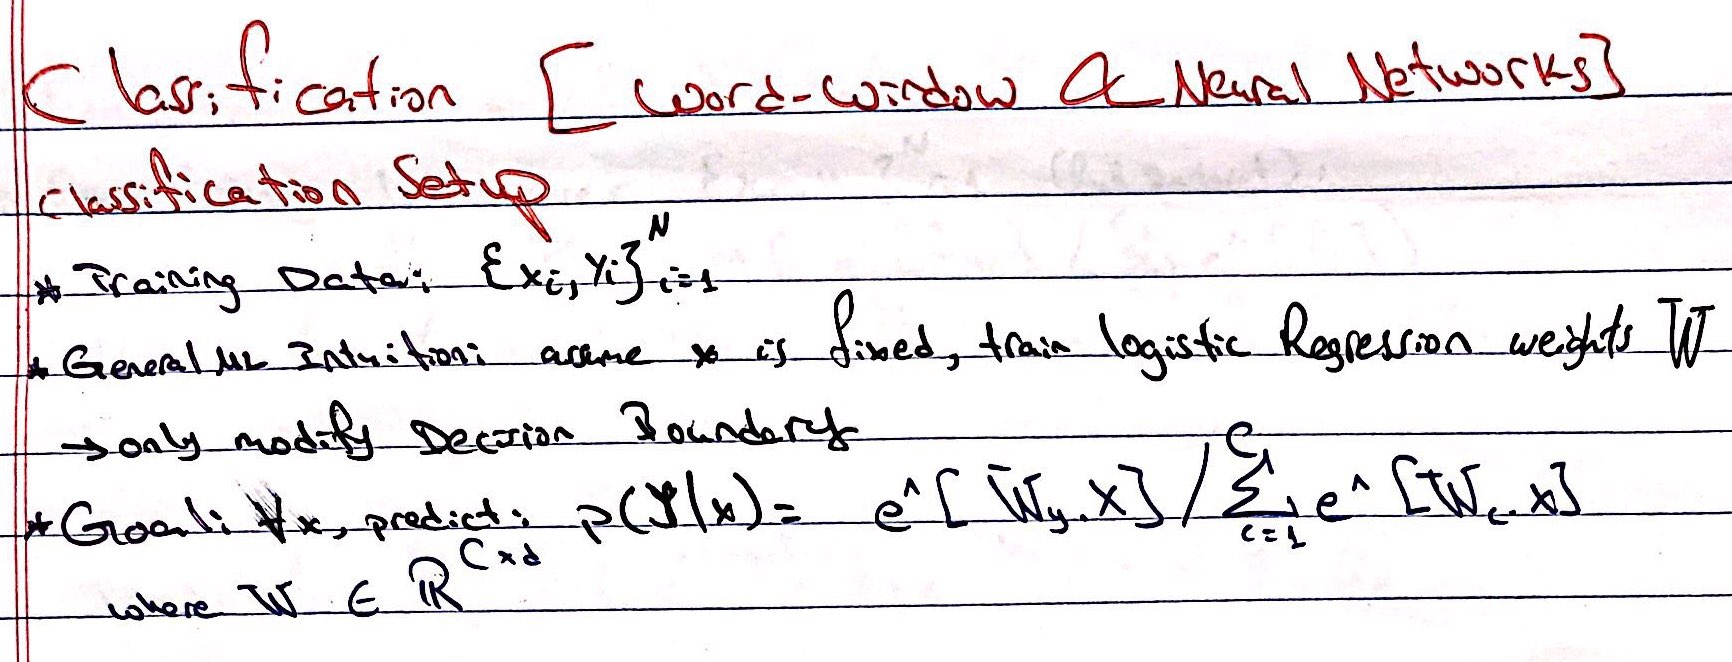 Classification [Word-Window & Neural Networks]
Classification Setup
* Training Data: {xᵢ, yᵢ}ᴺᵢ₌₁
* General ML Intuition: assume x is fixed, train logistic Regression weights W
→ only modify Decision Boundary
* Goal: ∀x, predict: p(y|x) = e^[W_y.x] / Σ_{c=1}^{C} e^[W_c.x]
where W ∈ ℝ^{C×d}